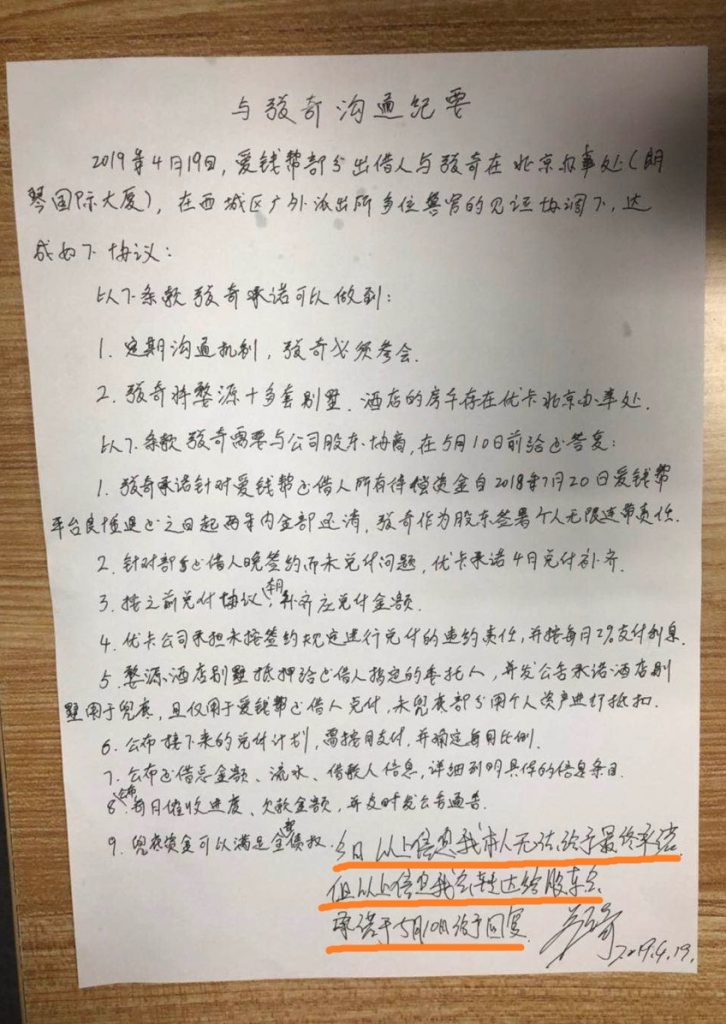 与骏奇沟通纪要
2019年4月19日,爱钱帮部分出借人与骏奇在北京办事处(朗
琴国际大厦),在西城区广外派出所多位警官的见证协调下,达
成如下协议:
以下条款骏奇承诺可以做到:
1. 定期沟通机制,骏奇必须参会.
2. 骏奇将婺源十多套别墅、酒店的房本存在优卡北京办事处.
以下条款骏奇需要与公司股东协商,在5月10日前给出答复:
1. 骏奇承诺针对爱钱帮出借人所有待偿资金自2018年7月20日爱钱帮
平台良性退出之日起两年内全部还清,骏奇作为股东签署个人无限连带责任.
2. 针对部分出借人晚签约而未兑付问题,优卡承诺4月兑付补齐.
3. 按之前兑付协议,本月补齐应兑付金额.
4. 优卡公司承担未按签约规定进行兑付的违约责任,并按每月2%支付利息.
5. 婺源酒店别墅抵押给出借人指定的委托人,并发公告承诺酒店别
墅用于兜底,且仅用于爱钱帮出借人兑付,未兜底部分用个人资产进行抵扣.
6. 公布接下来的兑付计划,需按月支付,并确定每月比例.
7. 公布出借总金额、流水、借款人信息,详细到明具体的信息条目.
8. 公布每月催收进度、欠款金额,并及时发公告通告.
9. 兜底资金可以满足全部债权.
今日以上信息我本人无法给予最终承诺.
但以上信息我会转达给股东会
承诺于5月10日给予回复.
2019.4.19.